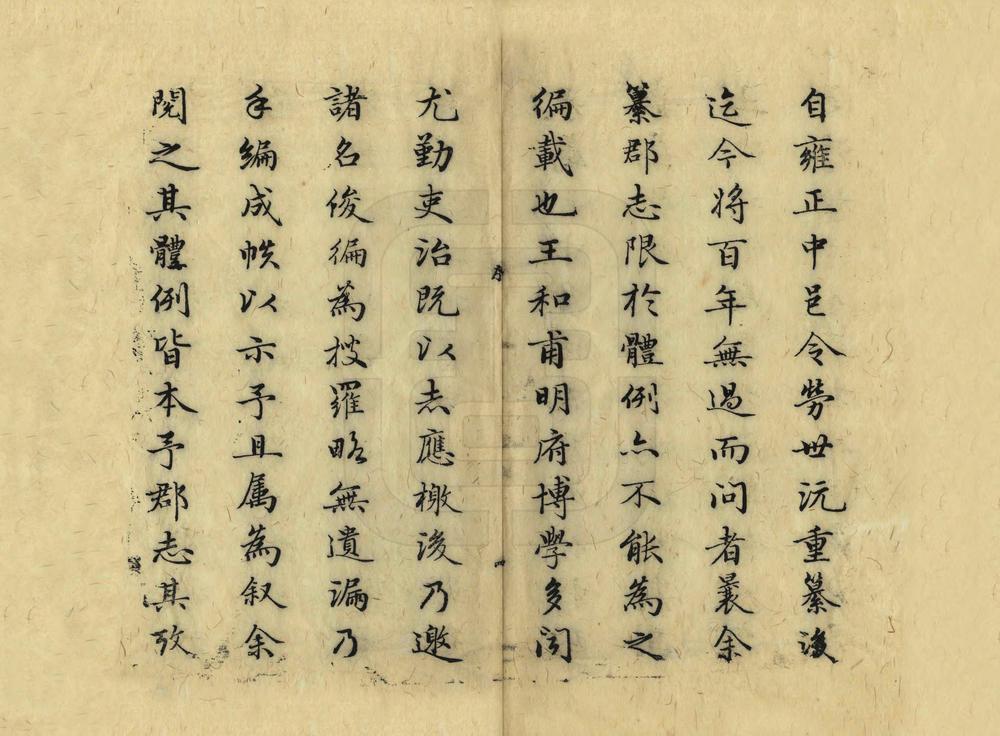 自雍正中邑令勞世沅重纂後
迄今將百年無過而问者曩余
纂郡志限於體例亦不能為之
徧載也王和甫明府博學多闻
序
四
尤勤吏治既以志應檄後乃邀
諸名俊徧為搜羅略無遺漏乃
手编成帙以示予且属為叙余
閱之其體例皆本予郡志其攷